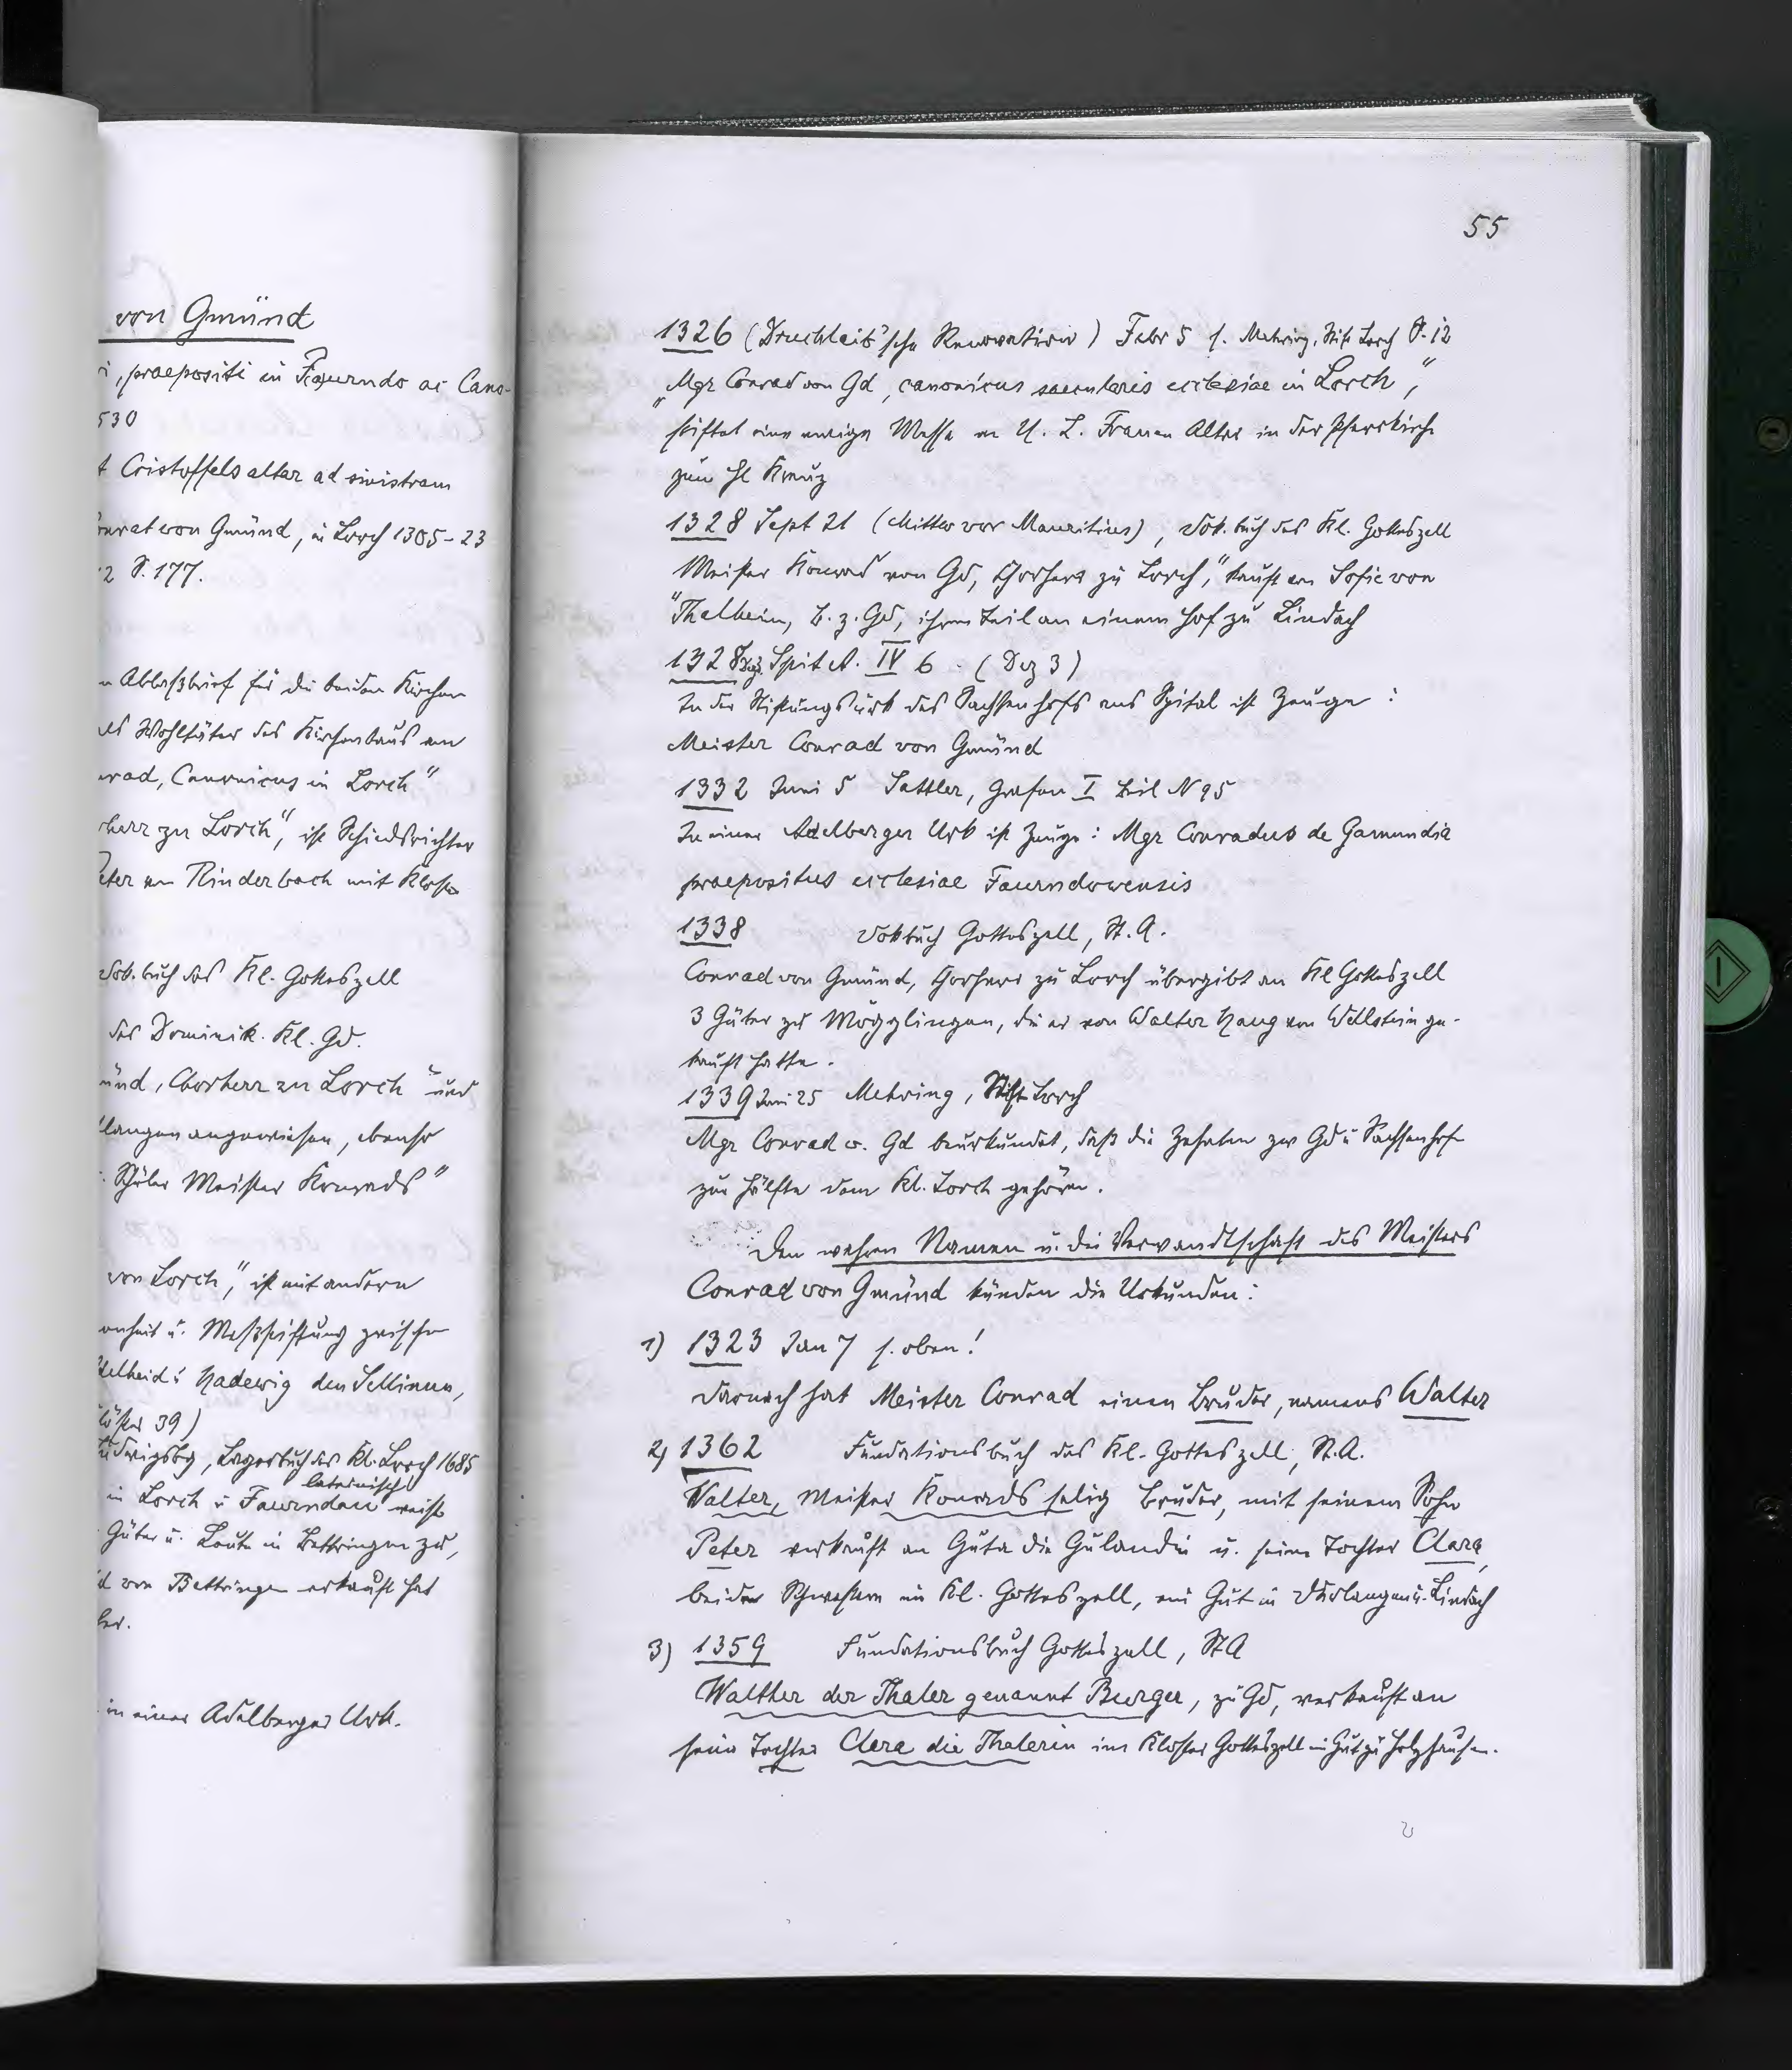 von Gmünd
, praepositi in Faurndo ac Cano-
530
Cristoffels altar ad sinistram
Conrat von Gmünd, in Lorch 1305-23
2 S. 177.
Ablaßbrief für die beiden Kirchen
als Wohltäter des Kirchenbaus am
Conrad, Canonicus in Lorch"
zu Lorch", ist Schiedsrichter
Peter von Rinderbach mit Kloster
Dok.buch des Kl. Gotteszell
des Dominik. Kl. Gd.
Gmünd, Chorherr zu Lorch" und
angewiesen, ebenso
Schüler Meister Konrads"
von Lorch", ist mit andern
u. Meßstiftung zwischen
Adelheid u. Hadewig den Sellinen,
39)
Ludwigsbg, Lagerbuch des Kl. Lorch 1685
lateinisch
in Lorch u Faurndau weist
Güter u. Leute in Bettringen zu,
von Bettringen erkauft hat
in einer Adelberger Urk.
55
1326 (Druchleib'sche Renovation) Febr 5 s. Mehring, Stift Lorch S. 12
„Mgr Conrad von Gd, canonicus saecularis ecclesiae in Lorch",
stiftet eine ewige Messe an U. L. Frauen Altar in der Pfarrkirche
zum hl Kreuz
1328 Sept 21 (Mittw vor Mauritius), Dok.buch des Kl. Gotteszell
Meister Konrad von Gd, Chorherr zu Lorch," kauft von Sofie von
"Thalheim, B. z. Gd, ihren Teil an einem Hof zu Lindach
1328 Dez. Spit A. IV 6 - (Dez 3)
In der Stiftungsurk des Sachsenhofs ans Spital ist Zeuge:
Meister Conrad von Gmünd
1332 Juni 5 Sattler, Grafen I Beil N 95
In einer Adelberger Urk ist Zeuge: Mgr Conradus de Gamundia
praepositus ecclesiae Faurndowensis
1338 Dokbuch Gotteszell, St.A.
Conrad von Gmünd, Chorherr zu Lorch übergibt an Kl Gotteszell
3 Güter zu Mögglingen, die er von Walter Haug von Wellstein ge-
kauft hatte.
1339 Juni 25 Mehring, Stift Lorch
Mgr Conrad v. Gd beurkundet, daß die Zehnten zu Gd u Sachsenhofe
zur Hälfte dem Kl. Lorch gehören.
Den wahren Namen u. die Verwandtschaft des Meisters
Conrad von Gmünd künden die Urkunden:
1) 1323 Jan 7 s. oben!
Darnach hat Meister Conrad einen Bruder, namens Walter
2) 1362 Fundationsbuch des Kl. Gotteszell, St.A.
Walter, Meister Konrads selig Bruder, mit seinem Sohn
Peter verkauft an Guta die Gulandin u. seine Tochter Clara,
beider Schwestern im Kl. Gotteszell, ein Gut in Durlangen u. Lindach
3) 1359 Fundationsbuch Gotteszell, StA
Walther der Thaler genannt Burger, zu Gd, verkauft an
seine Tochter Clara die Thalerin im Kloster Gotteszell ein Gut zu Holzhausen.